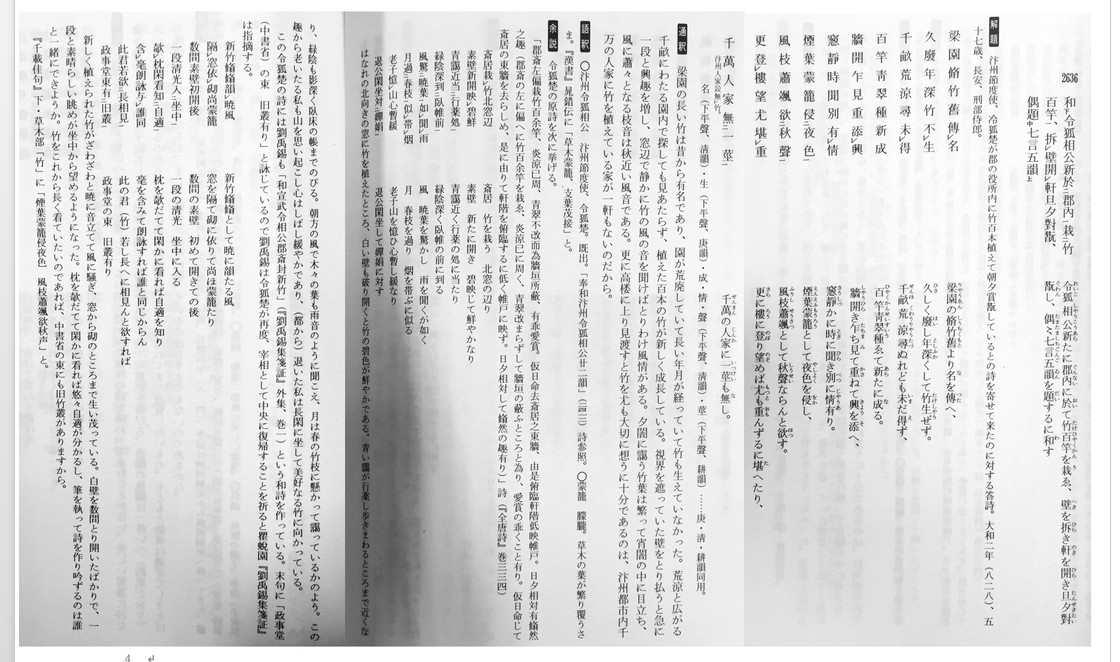 2636
和令狐相公新於郡内栽竹
百竿、拆壁開軒旦夕對翫、
偶題七言五韻
令狐相公新たに郡内に於て竹百竿を栽ゑ、壁を拆き軒を開き旦夕對
翫し、偶〻七言五韻を題するに和す
解題 汴州節度使、令狐楚が郡の役所内に竹百本植えて朝夕賞翫しているとの詩を寄せて来たのに対する答詩。大和二年(八二八)、五
十七歳、長安、刑部侍郎。
梁園脩竹舊傳名
久廢年深竹不生
千畝荒涼尋未得
百竿青翠種新成
牆開乍見重添興
窻靜時聞別有情
煙葉蒙籠侵夜色
風枝蕭颯欲秋聲
更登樓望尤堪重
千萬人家無一莖
汴州人家並無竹
梁園の脩竹舊より名を傳へ、
久しく廢し年深くして竹生ぜず。
千畝荒涼尋ぬれども未だ得ず、
百竿青翠種ゑて新たに成る。
牆開き乍ち見て重ねて興を添へ、
窻靜かに時に聞き別に情有り。
煙葉蒙籠として夜色を侵し、
風枝蕭颯として秋聲ならんと欲す。
更に樓に登り望めば尤も重んずるに堪へたり、
千萬の人家に一莖も無し。
名(下平聲、清韻)・生(下平聲、庚韻)・成・情・聲(下平聲、清韻)・莖(下平聲、耕韻)……庚・清・耕韻同用。
通釈 梁園の長い竹は昔から有名であり、園が荒廃していて長い年月が経っていて竹も生えていなかった。荒涼と広がる
千畝にわたる園内で探しても見あたらず、植えた百本の竹が新しく成長している。視界を遮っていた壁をとり払うと急に
一段と興趣を増し、窓辺で静かに竹の風の音を聞けばとりわけ風情がある。夕闇に靄う竹葉は繁って宵闇の中に目立ち、
風に蕭々となる枝音は秋近い風音である。更に高楼に上り見渡すと竹を尤も大切に想うに十分であるのは、汴州都市内千
万の人家に竹を植えている家が一軒もないのだから。
語釈 〇汴州令狐相公 汴州節度使、令狐楚。既出。「奉和汴州令狐相公廿二韻」詩参照。〇蒙籠 朦朧。草木の葉が繁り覆うさ
ま。『漢書』鼂錯伝に「草木蒙籠、支葉茂接」と。
余説 令狐楚の原詩を次に挙げる。
「郡斎左偏栽竹百余竿、炎涼已周、青翠不改而為牆垣所蔽、有乖愛賞。仮日命去斎居之東牆、由是俯臨軒階低映帷戸。日夕相対有翛然
之趣」(郡斎の左に偏へに竹百余竿を栽ゑ、炎涼已に周く、青翠改まらずして牆垣の蔽ふところと為り、愛賞の乖くこと有り。仮日命じて
斎居の東牆を去らしめ、是に由りて軒階を俯臨するに低く帷戸に映ず。日夕相対して翛然の趣有り)詩(『全唐詩』巻三三四)
斎居栽竹北窓辺
素壁新開映碧鮮
青靄近当行薬処
緑陰深到臥帷前
風驚暁葉如聞雨
月過春枝似帯烟
老子憶山心暫緩
退公閑坐対嬋娟
斎居 竹を栽う 北窓の辺り
素壁 新たに開き 碧映じて鮮やかなり
青靄近く行薬の処に当たり
緑陰深く臥帷の前に到る
風 暁葉を驚かし 雨を聞くが如く
月 春枝を過り 烟を帯ぶに似る
老子山を憶ひ心暫し緩なり
退公閑坐して嬋娟に対す
はなれの北向きの窓に竹を植えたところ、白い壁も破り開くと竹の碧色が鮮やかである。青い靄が行薬し歩きまわるところまで近くな
り、緑陰も影深く臥床の帳までのびる。朝方の風で木々の葉も雨音のように聞こえ、月は春の竹枝に懸かって靄っているかのよう。この
趣から老いたる私も山を思い起こし心はしばし緩やかであり、(都から)退いた私は長閑に坐して美好なる竹に向かっている。
この令狐楚の詩には劉禹錫も「和宣武令狐相公郡斎対新竹」(『劉禹錫集箋証』外集、巻一)という和詩を作っている。末句に「政事堂
(中書省)の東 旧叢有り」と詠じているので劉禹錫は令狐楚が再度、宰相として中央に復帰することを祈ると瞿蛻園『劉禹錫集箋証』
は指摘する。
新竹翛翛韻暁風
隔窓依砌尚蒙籠
数間素壁初開後
一段清光入坐中
欹枕閑看知自適
含毫朗詠与誰同
此君若欲長相見
政事堂東有旧叢
新竹翛翛として暁に韻たる風
窓を隔て砌に依りて尚ほ蒙籠たり
数間の素壁 初めて開きての後
一段の清光 坐中に入る
枕を欹だてて閑かに看れば自適を知り
毫を含みて朗詠すれば誰と同じからん
此の君(竹)若し長へに相見んと欲すれば
政事堂の東 旧叢有り
新しく植えられた竹がざわざわと暁に音立てて風に騒ぎ、窓から砌のところまで生い茂っている。白壁を数間とり開いたばかりで、一
段と素晴らしい眺めが坐中から望めるようになった。枕を欹だてて閑かに看れば悠々自適が分かるし、筆を執って詩を作り吟ずるのは誰
と一緒にできようか。竹をこれから長く看ていたいのであれば、中書省の東にも旧竹叢がありますから。
『千載佳句』下・草木部「竹」に「煙葉蒙籠侵夜色 風枝蕭颯欲秋声」と。
4